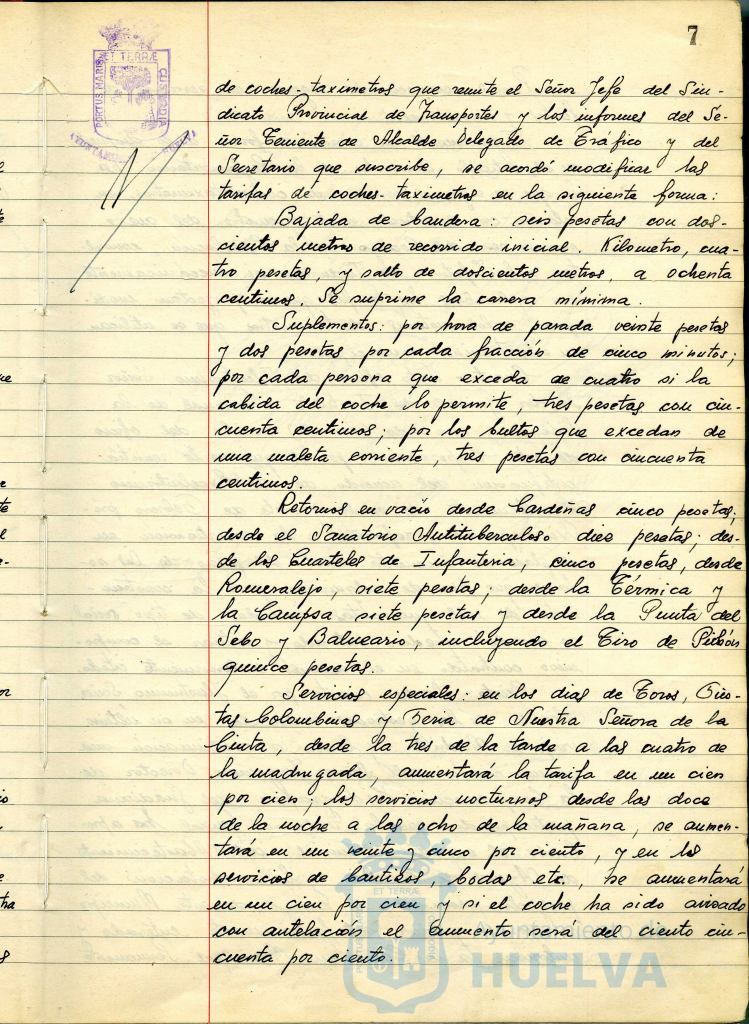 7
PORTUS MARIS
ET TERRÆ
CUSTODIA
de coches-taximetros que remite el Señor Jefe del Sin-
dicato Provincial de Transportes y los informes del Se-
ñor Teniente de Alcalde Delegado de Tráfico y del
Secretario que suscribe, se acordó modificar las
tarifas de coches-taximetros en la siguiente forma:
Bajada de bandera: seis pesetas con dos-
cientos metros de recorrido inicial. Kilometro, cua-
tro pesetas, y salto de doscientos metros, a ochenta
centimos. Se suprime la carrera mínima.
Suplementos: por hora de parada veinte pesetas
y dos pesetas por cada fracción de cinco minutos;
por cada persona que exceda de cuatro si la
cabida del coche lo permite, tres pesetas con cin-
cuenta centimos; por los bultos que excedan de
una maleta corriente, tres pesetas con cincuenta
centimos.
Retornos en vacío desde Cardeñas cinco pesetas;
desde el Sanatorio Antituberculoso diez pesetas; des-
de los Cuarteles de Infanteria, cinco pesetas, desde
Romeralejo, siete pesetas; desde la Térmica y
la Campsa siete pesetas y desde la Punta del
Sebo y Balneario, incluyendo el Tiro de Pichón
quince pesetas.
Servicios especiales: en los dias de Toros, Fies-
tas Colombinas y Feria de Nuestra Señora de la
Cinta, desde la tres de la tarde a las cuatro de
la madrugada, aumentará la tarifa en un cien
por cien; los servicios nocturnos desde las doce
de la noche a las ocho de la mañana, se aumen-
tará en un veinte y cinco por ciento, y en los
servicios de bautizos, bodas etc., se aumentará
en un cien por cien y si el coche ha sido avisado
con antelación el aumento será del ciento cin-
cuenta por ciento.
Ayuntamiento de
HUELVA